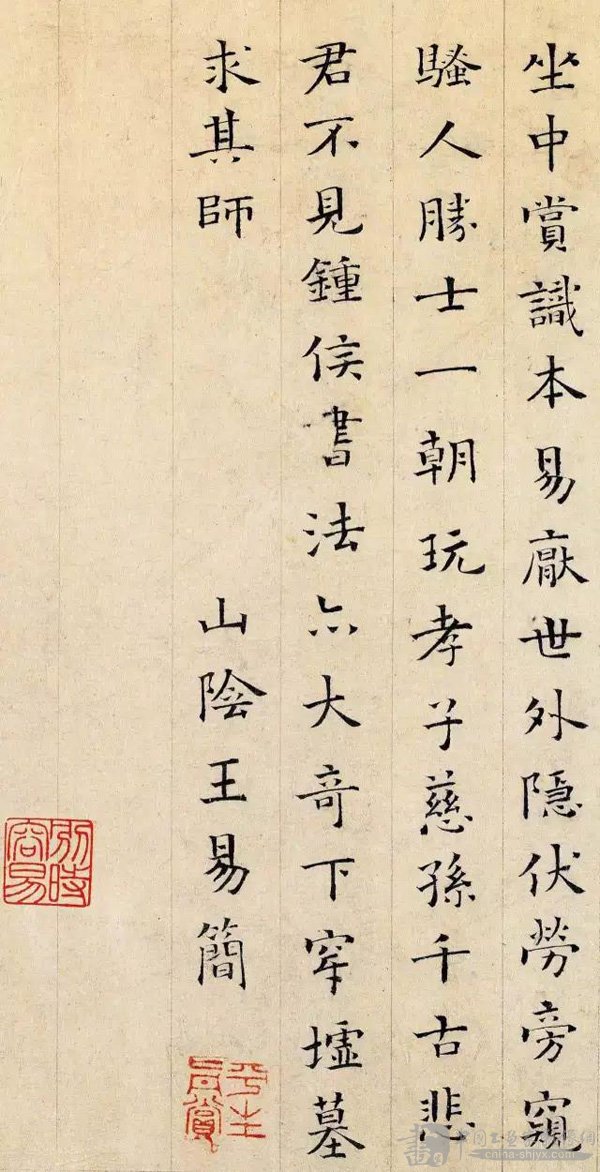 坐中賞識本易厭世外隱伏勞旁窺
騷人勝士一朝玩孝子慈孫千古悲
君不見鍾侯書法亦大奇下穿墟墓
求其師
山陰王易簡
china-shjyx.com